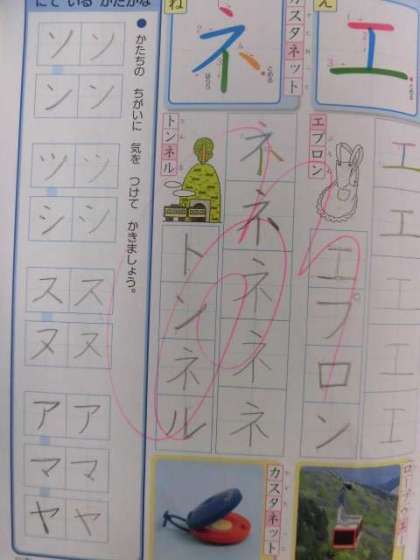 え
エ
エプロン
エ
エ
エ
エ
エ
エプロン
ロープウェー
ね
ネ
カスタネット
トンネル
ネ
ネ
ネ
ネ
ネ
トンネル
カスタネット
にて いる かたかな
● かたちの ちがいに 気を つけて かきましょう。
ソ ソ
ン ン
ツ ツ
シ シ
ス ス
ヌ ヌ
ア ア
マ マ
ヤ ヤ